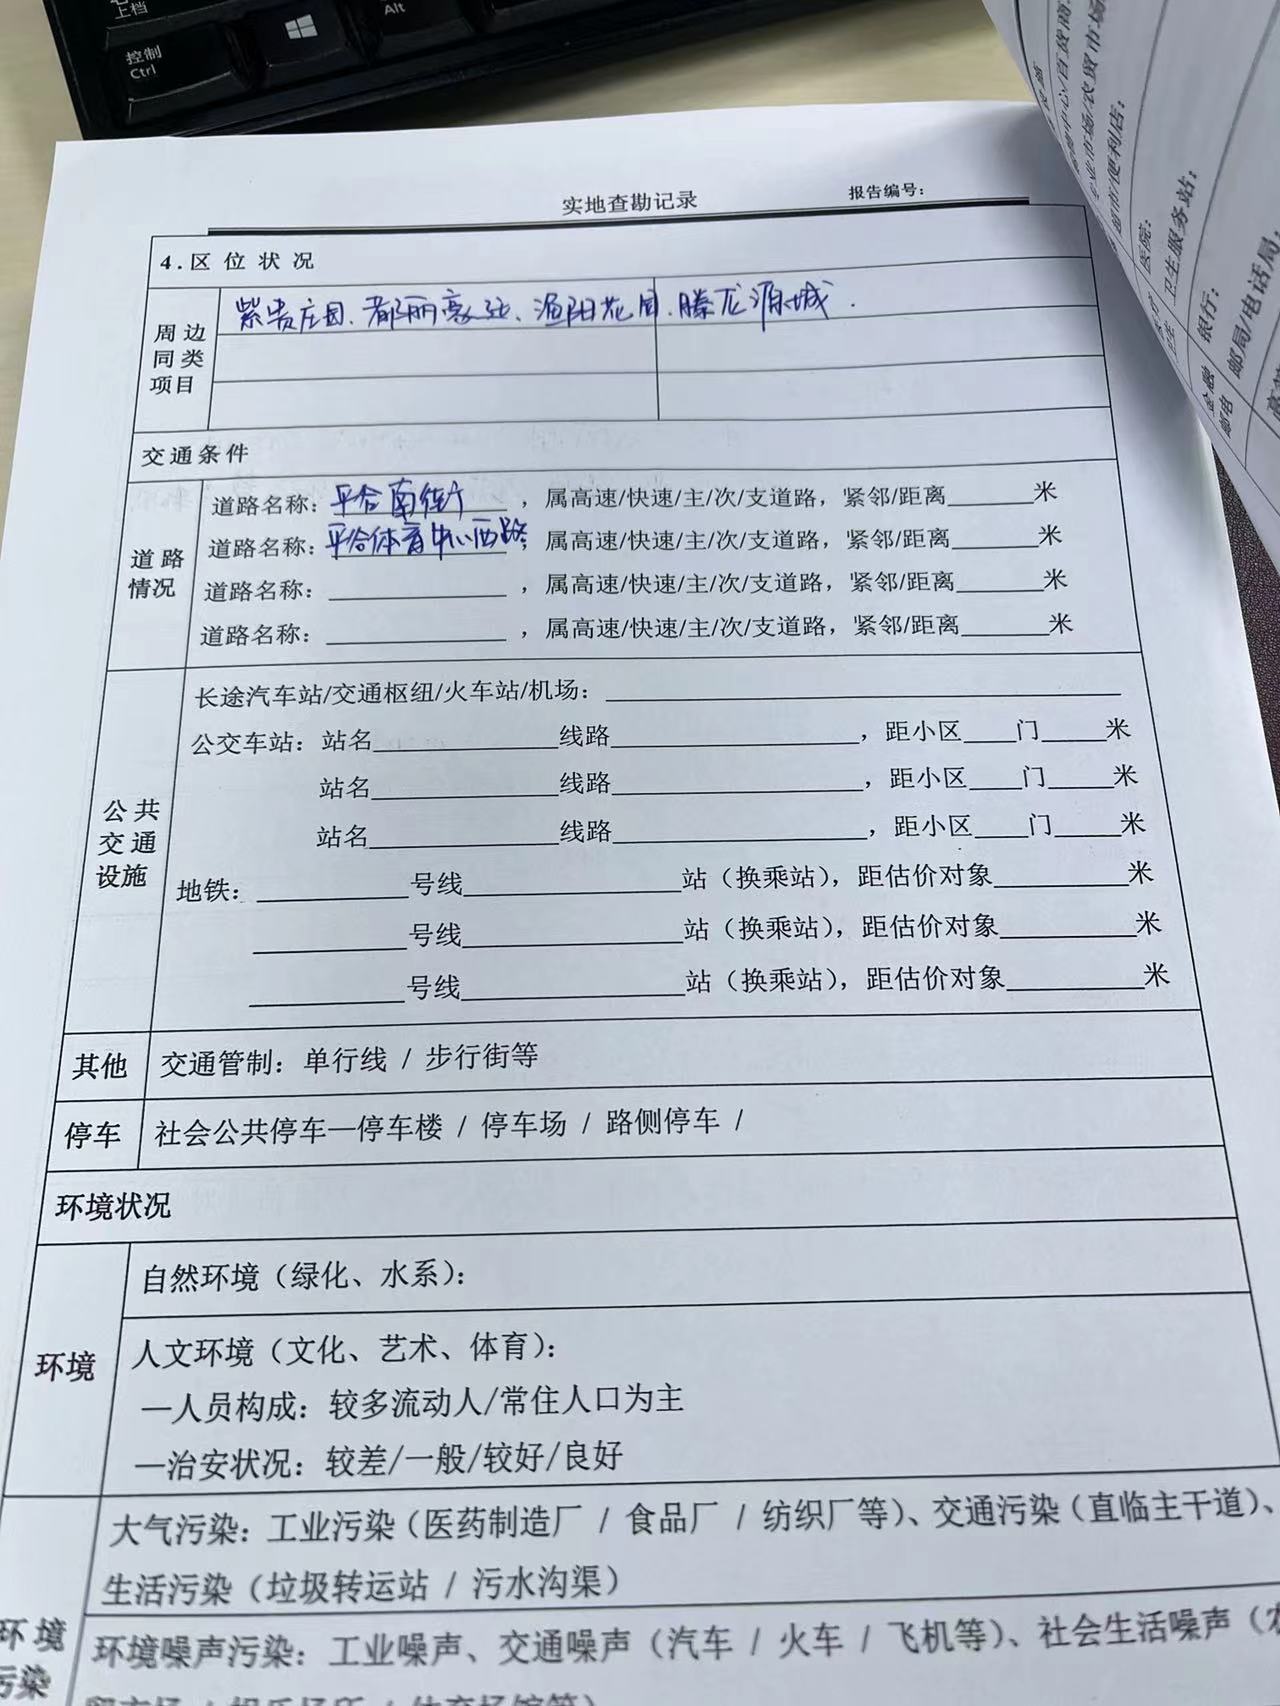 上档
控制
Ctrl
Alt
实地查勘记录 报告编号：
4.区位状况
周边同类项目
紫贵庄园、都丽豪庭、渔阳花园、腾龙源城.
交通条件
道路情况
道路名称：平谷南街，属高速/快速/主/次/支道路，紧邻/距离______米
道路名称：平谷体育中心西路，属高速/快速/主/次/支道路，紧邻/距离______米
道路名称：____________，属高速/快速/主/次/支道路，紧邻/距离______米
道路名称：____________，属高速/快速/主/次/支道路，紧邻/距离______米
公共交通设施
长途汽车站/交通枢纽/火车站/机场：____________
公交车站：站名____________线路____________，距小区____门____米
站名____________线路____________，距小区____门____米
站名____________线路____________，距小区____门____米
地铁：__________号线____________站（换乘站），距估价对象________米
__________号线____________站（换乘站），距估价对象________米
__________号线____________站（换乘站），距估价对象________米
其他 交通管制：单行线 / 步行街等
停车 社会公共停车—停车楼 / 停车场 / 路侧停车 /
环境状况
环境
自然环境（绿化、水系）：
人文环境（文化、艺术、体育）：
—人员构成：较多流动人/常住人口为主
—治安状况：较差/一般/较好/良好
环境污染
大气污染：工业污染（医药制造厂 / 食品厂 / 纺织厂等）、交通污染（直临主干道）、
生活污染（垃圾转运站 / 污水沟渠）
环境噪声污染：工业噪声、交通噪声（汽车 / 火车 / 飞机等）、社会生活噪声（农
贸市场 / 娱乐场所 / 体育场馆等）
医院：
卫生服务站：
银行：
邮局/电话局：